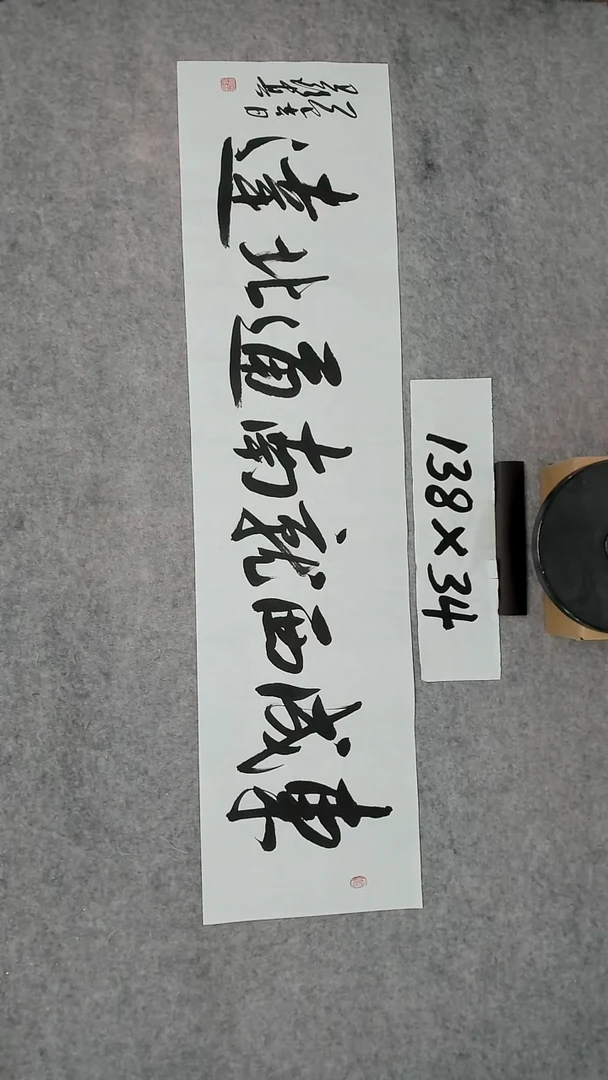 東成西就南通北達
138×34